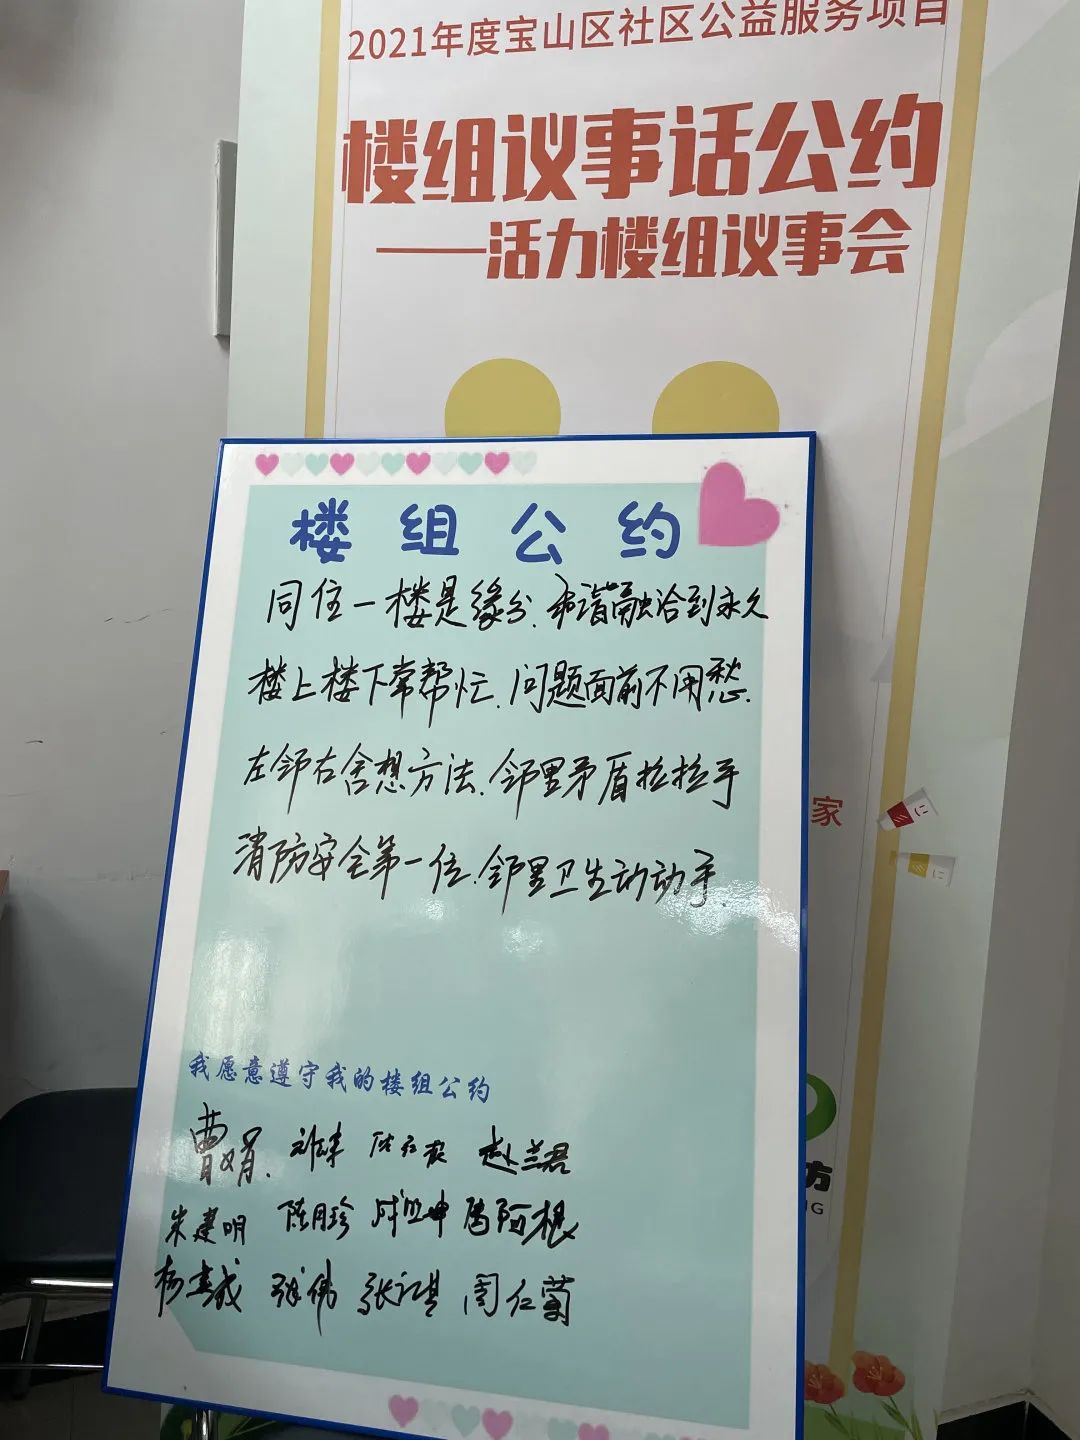 2021年度宝山区社区公益服务项目
楼组议事话公约
——活力楼组议事会
楼组公约
同住一楼是缘分.和谐融洽到永久
楼上楼下常帮忙.问题面前不用愁.
左邻右舍想方法.邻里矛盾拉拉手
消防安全第一位.邻里卫生动动手.
我愿意遵守我的楼组公约
曹娟. 赵兰君
朱建明 陈月珍 周阿根
张伟 周仁菊
家
方
NG